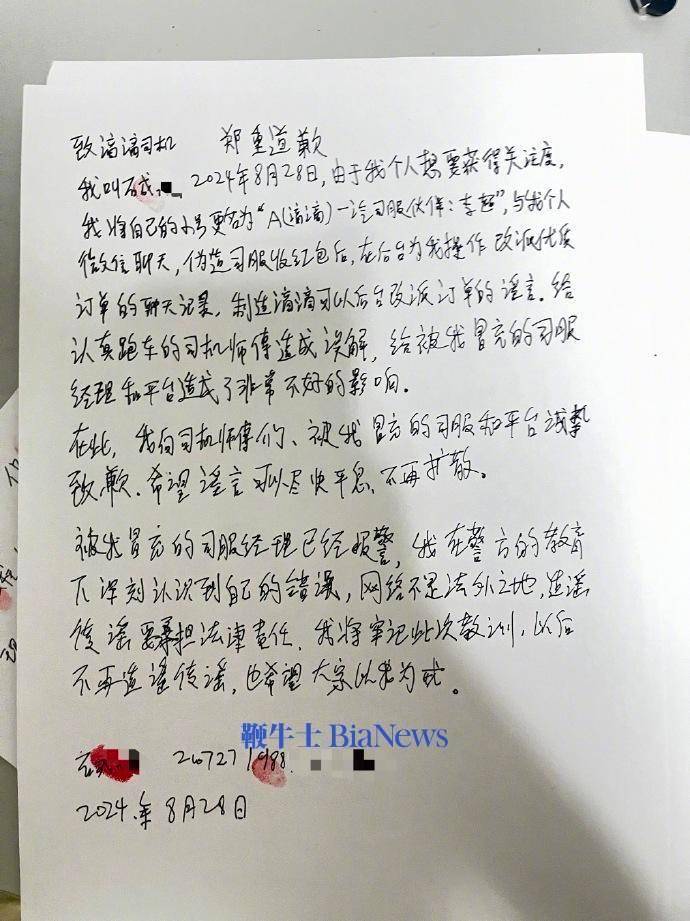 致滴滴司机 郑重道歉
我叫石成 2024年8月28日,由于我个人想要获得关注度,
我将自己的小号更名为“A(滴滴)一汽司服伙伴:李超”,与我个人
微信聊天,伪造司服收红包后,在后台为我操作改派优质
订单的聊天记录,制造滴滴可以后台改派订单的谣言.给
认真跑车的司机师傅造成误解,给被我冒充的司服
经理和平台造成了非常不好的影响.
在此,我向司机师傅们、被我冒充的司服和平台诚挚
致歉.希望谣言可以尽快平息、不再扩散。
被我冒充的司服经理已经报警,我在警方的教育
下深刻认识到自己的错误,网络不是法外之地,造谣
传谣要承担法律责任.我将牢记此次教训,以后
不再造谣传谣,也希望大家以我为戒。
鞭牛士 BiaNews
1988.
2024年8月28日